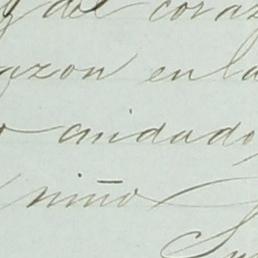 y del coraz
azon en la
o cuidado
niño